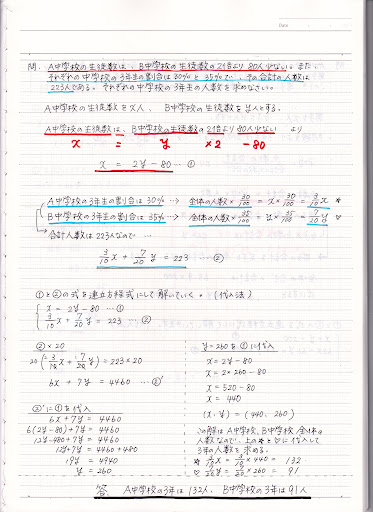 Date
問. A中学校の生徒数は、B中学校の生徒数の2倍より80人少ない。また、
それぞれの中学校の3年生の割合は30%と35%で、その合計の人数は
223人である。それぞれの中学校の3年生の人数を求めなさい。
A中学校の生徒数をx人、B中学校の生徒数をy人とする。
A中学校の生徒数は、B中学校の生徒数の2倍より80人少ない より
x = y ×2 -80
x = 2y-80 … ①
A中学校の3年生の割合は30% …→ 全体の人数×30/100 = x×30/100 = 3/10x ☆
B中学校の3年生の割合は35% …→ 全体の人数×35/100 = y×35/100 = 7/20y ♡
合計人数は223人なので …
3/10x + 7/20y = 223 … ②
①と②の式を連立方程式にして解いていく。(代入法)
x = 2y-80 … ①
3/10x + 7/20y = 223 … ②
②×20
20(3/10x + 7/20y) = 223×20
6x + 7y = 4460 …②'
②'に①を代入
6x+7y = 4460
6(2y-80)+7y = 4460
12y-480+7y = 4460
12y+7y = 4460+480
19y = 4940
y = 260
y=260を①に代入
x = 2y-80
x = 2×260-80
x = 520-80
x = 440
(x, y) = (440, 260)
この解はA中学校、B中学校全体の
人数なので、上の☆と♡に代入して
3年の人数を求める。
☆ 3/10x = 3/10×440 = 132
♡ 7/20y = 7/20×260 = 91
答. A中学校の3年は132人、B中学校の3年は91人